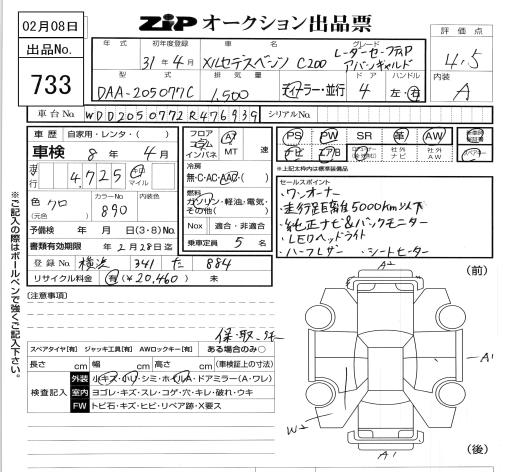 02月08日
ZIP オークション出品票
出品No.
733
年式
初年度登録
車名
グレード
評価点
31年4月
メルセデスベンツ C200
レーダーセーフティP
アバンギャルド
4.5
型式
排気量
ドア
ハンドル
内装
DAA-205077C
1,500
ディーラー・並行
4
左・右
A
車台No.
WDD2050772R476939
シリアルNo.
車歴
自家用・レンタ・( )
車検
8年 4月
走行
4,725
km
マイル
色
クロ
(元色)
カラーNo.
890
内装色
予備検
年 月 日(3・8)No.
書類有効期限
2月28日迄
登録No.
横浜 341 た 884
リサイクル料金
有(¥20,460) 未
フロア
コラム
インパネ
A
MT
速
冷房
無・C・AC・AAC・( )
燃料
ガソリン・軽油・電気・
その他( )
Nox
適合・非適合
乗車定員
5 名
PS
PW
SR
革
AW
ナビ
エアB
社外
ナビ
社外
AW
*上記太枠内は標準装備品
セールスポイント
・ワンオーナー
・走行距離5000km以下
・純正ナビ&バックモニター
・LEDヘッドライト
・ハーフレザー ・シートヒーター
※ご記入の際はボールペンで強くご記入下さい。
(注意事項)
スペアタイヤ[有] ジャッキ工具[有] AWロックキー[有]
ある場合のみ○
長さ cm
幅 cm
高さ cm
(車検証上の寸法)
検査記入
外装
小キズ・小凹・シミ・ホイルA・ドアミラー(A・ワレ)
室内
ヨゴレ・キズ・スレ・コゲ・穴・キレ・破れ・ウキ
FW
トビ石・キズ・ヒビ・リペア跡・X要ス
(前)
A2
A1
W2
A1
(後)